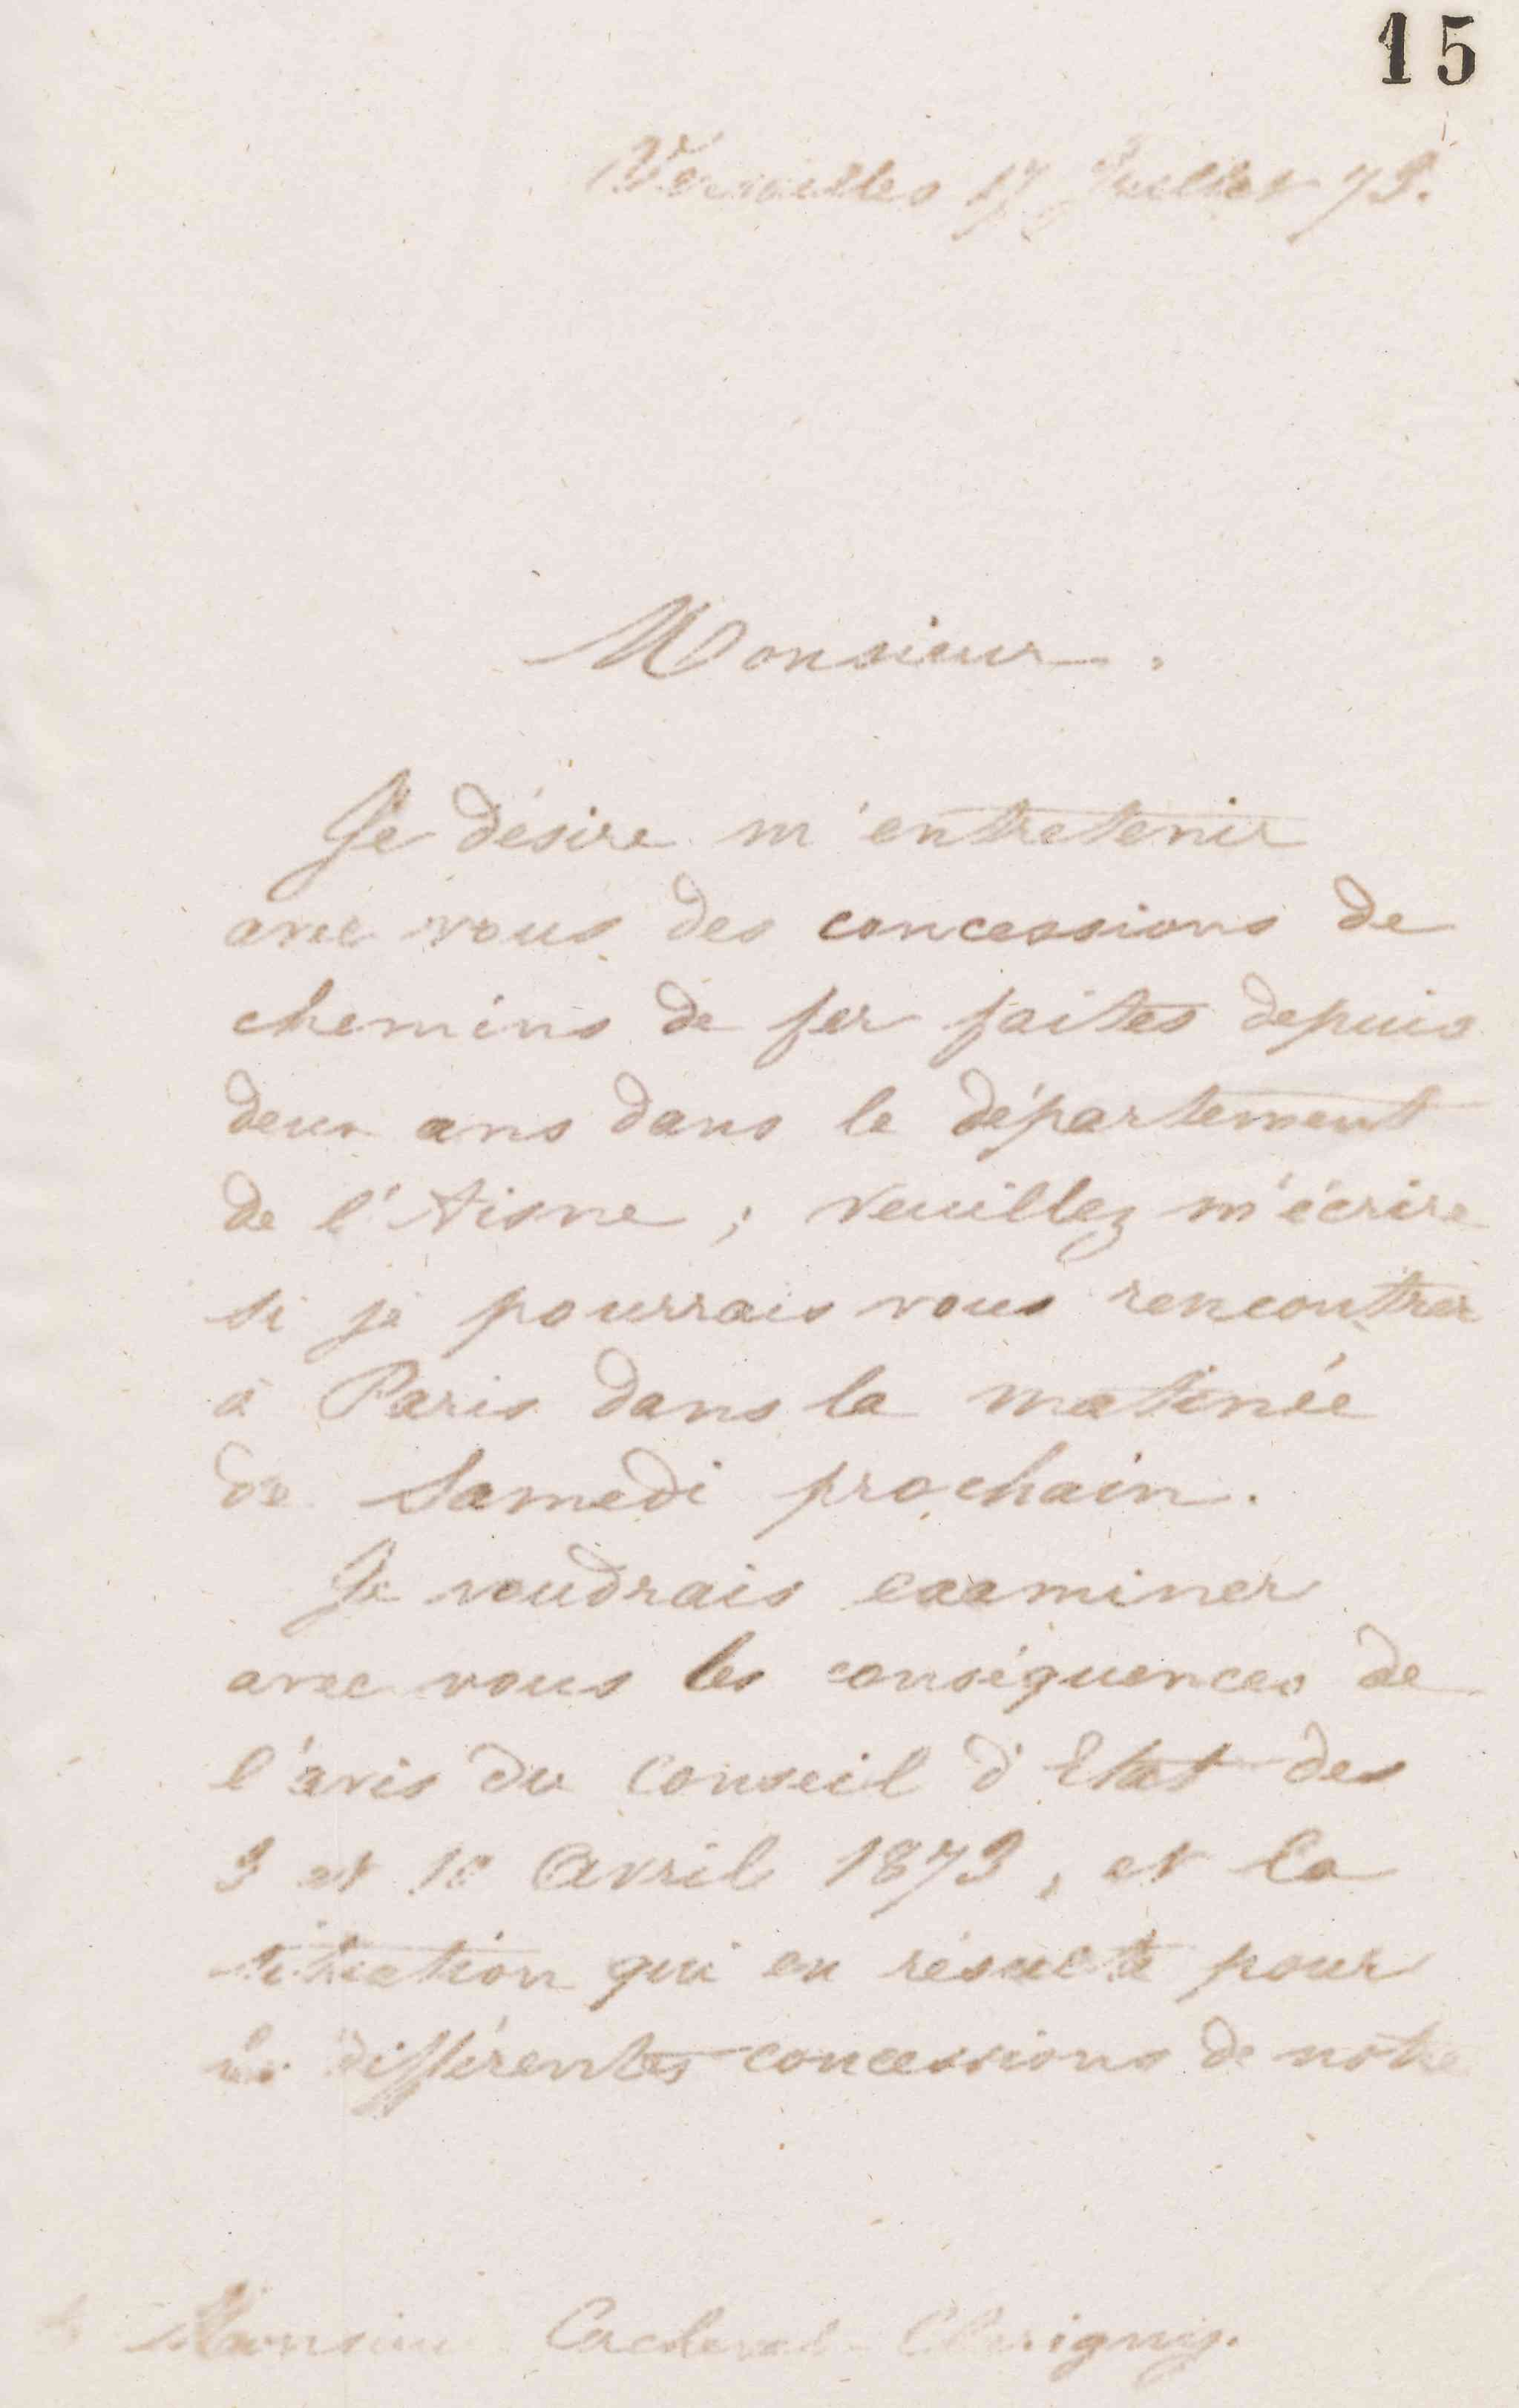 15
Versailles 17 Juillet 73.
Monsieur.
Je désire m'entretenir
avec vous des concessions de
chemins de fer faites depuis
deux ans dans le département
de l'Aisne ; Veuillez m'écrire
si je pourrais vous rencontrer
à Paris dans la matinée
de Samedi prochain.
Je voudrais examiner
avec vous les conséquences de
l'avis du Conseil d'Etat des
3 et 10 Avril 1873, et la
situation qui en résulte pour
les différentes concessions de notre
Monsieur